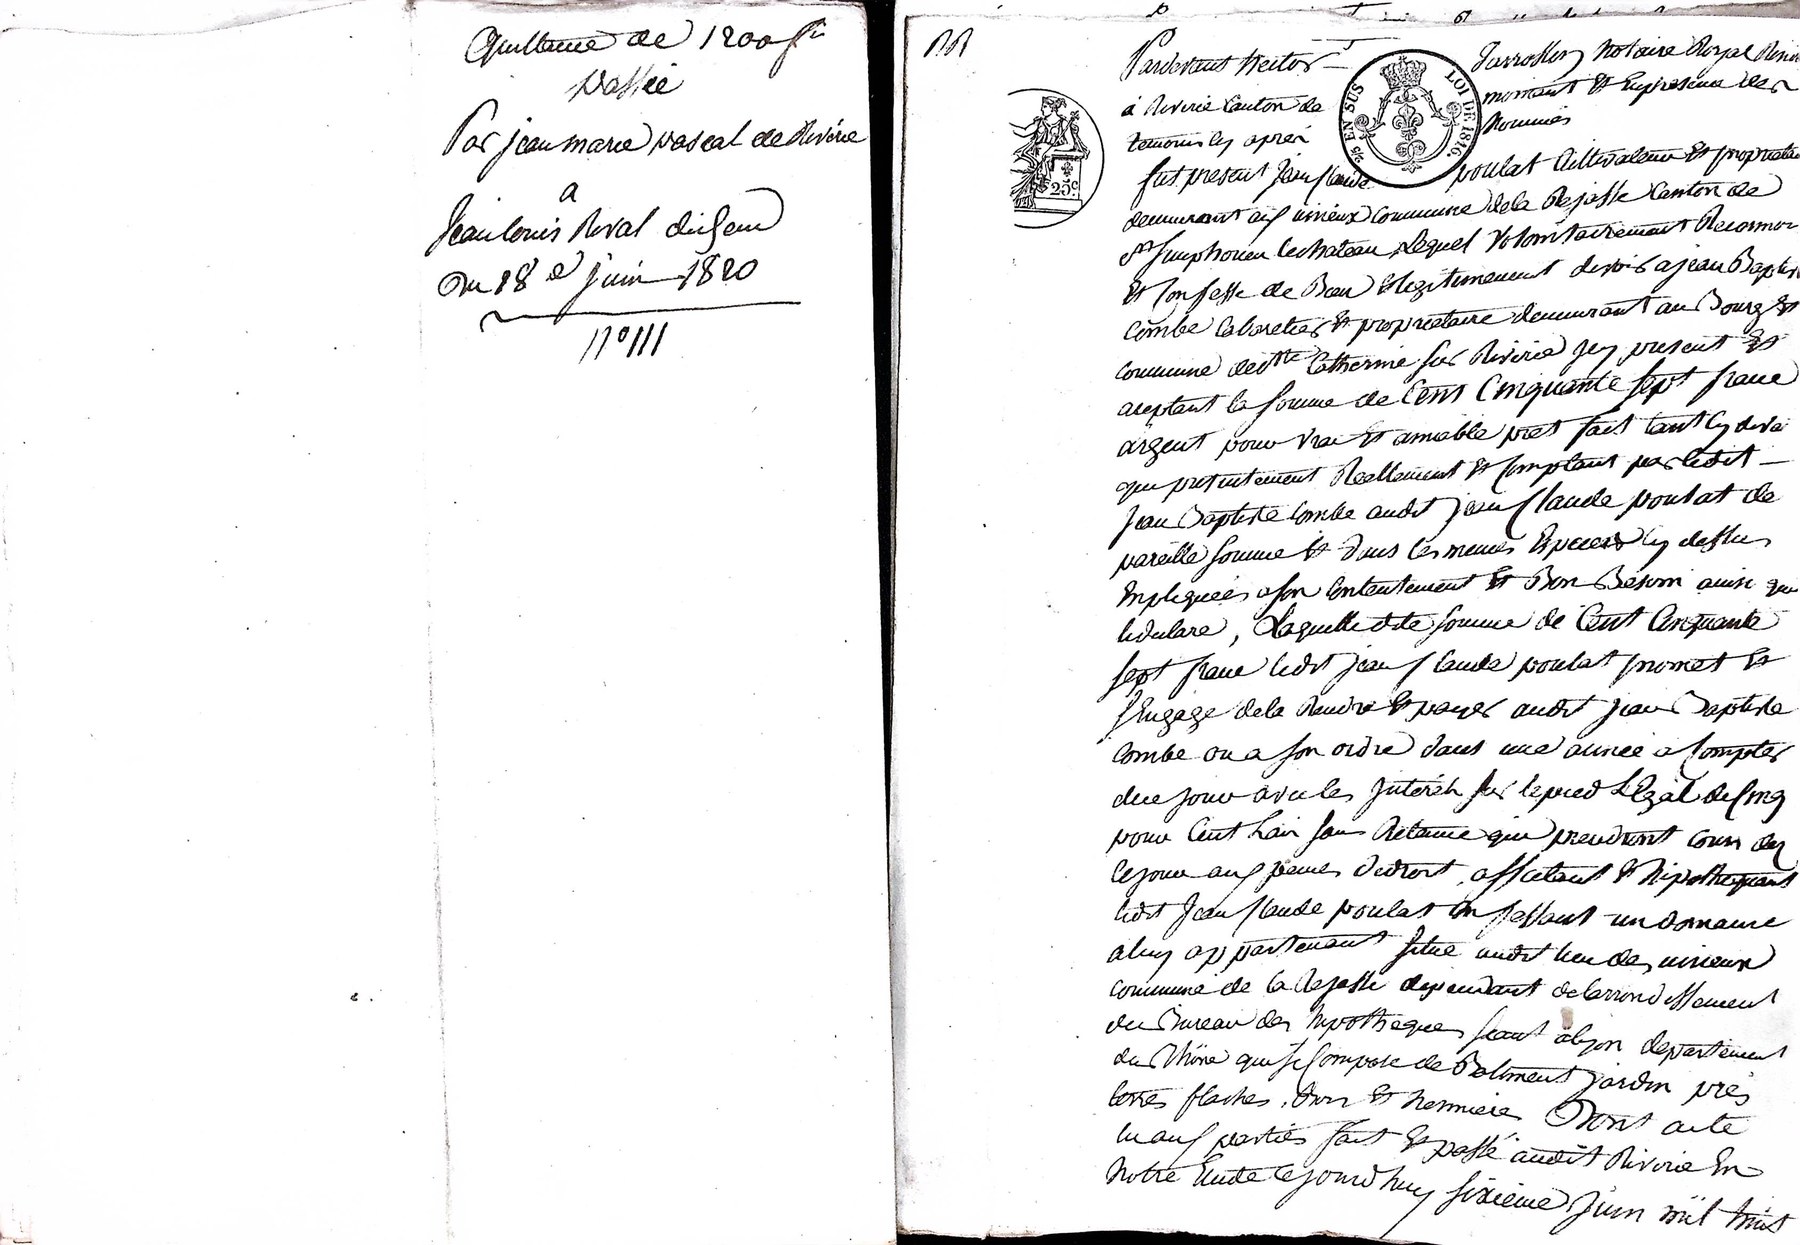 Quittance de 1200 fr
Passée
Par jean marie pascal de Riverie
a
Jean louis Rival dudit lieu
Du 18 e juin 1820
n° 111
Pardevant Hector Jarrosson notaire Royal
à Riverie Canton de mornant Et En presence des
temoins cy aprés Nommés
EN SUS LOI DE 1816.
25c.
fut present Jean Claude poulat Cultivateur Et proprietaire
demeurant aux commune de la Rajasse Canton de
st Simphorien le chateau Lequel Volontairement Reconnoi
Et Confesse de Bien Et legitimement devoir a jean Baptiste
Combe Cabaretier Et proprietaire demeurant au Bourg Et
commune de ste Catherine sur Riverie Jcy present Et
aceptant la somme de Cent Cinquante sept franc
argent pour vrai Et amiable pret fait tant cy devant
que presentement Reellement Et Comptant par ledit
Jean Baptiste Combe audit jean Claude poulat de
pareille somme Et dans les memes Especes cy dessus
Expliquées a son Contentement Et Bon Besoin ainsi que
ledulare, Laquelle dte somme de Cent Cinquante
sept franc ledit jean Claude poulat promet Et
s'Engage de la Rendre Et payer audit jean Baptiste
Combe ou a son ordre dans une année a Compter
de ce jour avec les Jnteréts sur le pied Légal de Cinq
pour Cent l'an sans Retenue qui prendront cours des
ce jour aux peines de droit, affectant Et hipothequant
ledit Jean Claude poulat En fessant un domaine
a luy appartenant situé audit lieu des
commune de la Rajasse dependant de larrondissement
du Bureau des hypotheques séant a lyon departement
du Rhône qui se Compose de Batiment jardin prés
terres Bois Et Dont acte
lu aux parties fait Et passé audit Riverie En
Notre Etude ce jourd'huy sixieme Juin mil huit